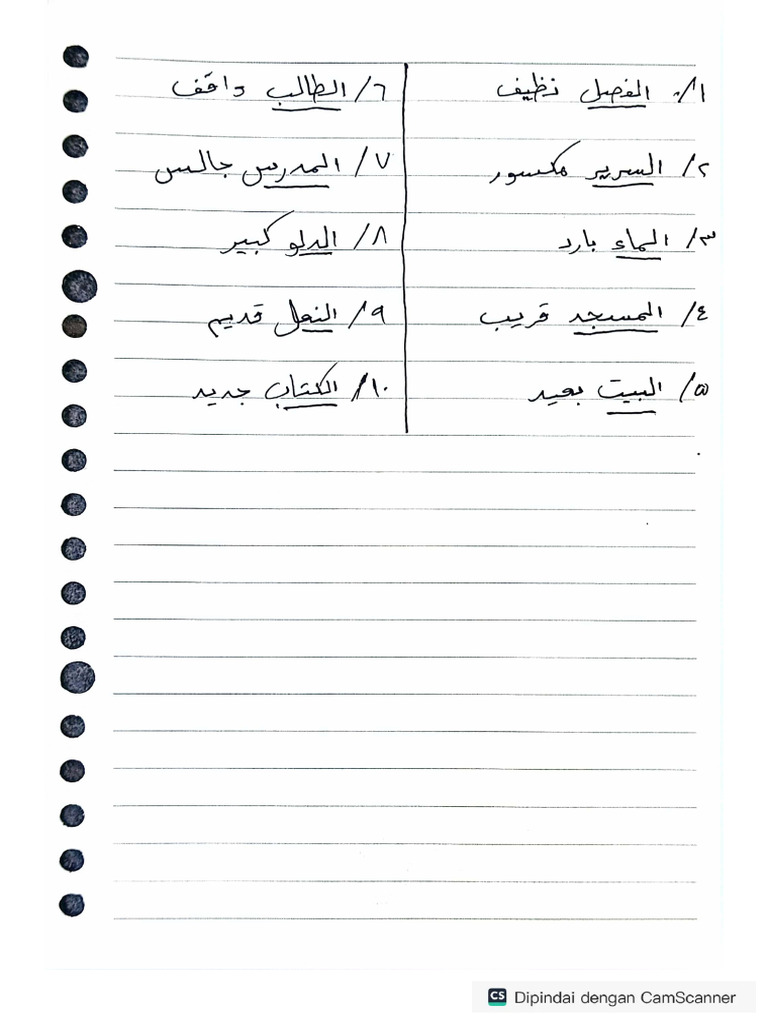 ١/ الفصل نظيف
٢/ السرير مكسور
٣/ الماء بارد
٤/ المسجد قريب
٥/ البيت بعيد
٦/ الطالب واقف
٧/ المدرس جالس
٨/ الدلو كبير
٩/ النعل قديم
١٠/ الكتاب جديد
CS Dipindai dengan CamScanner